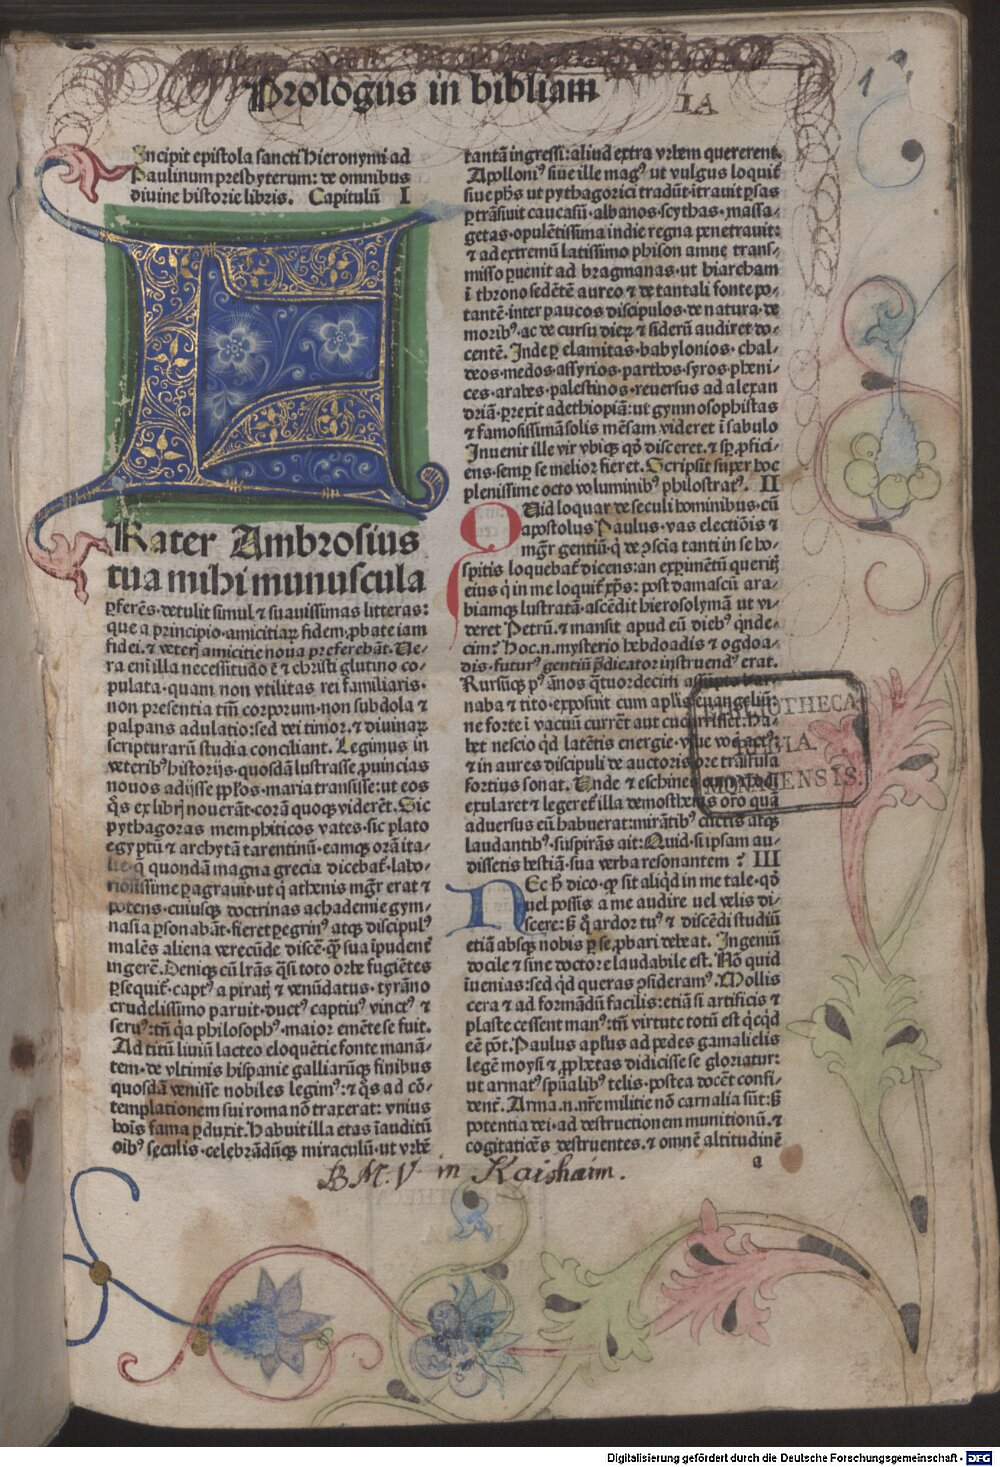 Prologus in bibliam
IA
1
Incipit epistola sancti Hieronymi ad
Paulinum presbyterum: de omnibus
diuine historie libris. Capitulū I
F
Rater Ambrosius
tua mihi munuscula
ꝑferēs·detulit simul ⁊ suauissimas litteras:
que a principio·amicitiaꝝ fidem·ꝓbate iam
fidei·⁊ veterꝭ amicitie noua preferebāt. Ue-
ra eni illa necessitudo ē ⁊ christi glutino co-
pulata·quam non vtilitas rei familiaris·
non presentia tm̄ corporum·non subdola ⁊
palpans adulatio:sed dei timor·⁊ diuinaꝝ
scripturarū studia conciliant. Legimus in
veteribꝰ historijs·quosdā lustrasse ꝓuincias
nouos adijsse ppłos·maria transisse:ut eos
q̄s ex librꝭ nouerāt·corā quoqꝫ viderēt. Sic
pythagoras memphiticos vates·sic plato
egyptū ⁊ archytā tarentinū·eamqꝫ orā ita-
lie·q̄ quondā magna grecia dicebat̄·labo-
riosissime ꝑagrauit·ut q̇ athenis mgr̄ erat ⁊
potens·cuiusqꝫ doctrinas achademie gym-
nasia ꝑsonabāt·fieret ꝑegrinꝰ atqꝫ discipulꝰ
malēs aliena verecūde discē·q̄ꝫ sua īpudent̄
ingerē. Deniqꝫ cū lr̄as q̄si toto orbe fugiētes
ꝑsequit̄·captꝰ a piratꝭ ⁊ venūdatus·tyrāno
crudelissimo paruit·ductꝰ captiuꝰ vinctꝰ ⁊
seruꝰ:tn̄ q̇a philosophꝰ·maior emēte se fuit.
Ad titū liuiū lacteo eloquētie fonte manā-
tem·de vltimis hispanie galliarūqꝫ finibus
quosdā venisse nobiles legimꝰ:⁊ q̄s ad cō-
templationem sui roma nō traxerat: vnius
hoīs fama ꝑduxit. Habuit illa etas īauditū
oībꝰ seculis·celebrādūqꝫ miraculū·ut vrbē
tantā ingressi:aliud extra vrbem quererent.
Apolloniꝰ siue ille magꝰ ut vulgus loquit̄
siue ph̄s ut pythagorici tradūt·ītrauit ꝑsas
ꝑtrāsiuit caucasū·albanos·scythas·massa-
getas·opulētissima indie regna penetrauit:
⁊ ad extremū latissimo phison amne trans-
misso ꝑuenit ad bragmanas·ut hiarcham
ī throno sedētē aureo ⁊ de tantali fonte po-
tantē·inter paucos discipulos·de natura·de
moribꝰ·ac de cursu dieꝝ ⁊ siderū audiret do-
centē. Inde ꝑ elamitas·babylonios·chal-
deos·medos·assyrios·parthos·syros·pheni-
ces·arabes·palestinos·reuersus ad alexan
driā·ꝑrexit ad ethiopiā:ut gymnosophistas
⁊ famosissimā solis mēsam videret ī sabulo
Inuenit ille vir vbiqꝫ qđ disceret·⁊ sꝑ ꝓfici-
ens·semꝑ se melior fieret. Scripsit super hoc
plenissime octo voluminibꝰ philostratꝰ. II
Quid loquar de seculi hominibus·cū
apostolus Paulus·vas electiōis ⁊
mgr̄ gentiū·q̇ de ꝯscia tanti in se ho-
spitis loquebat̄ dicens:an exꝑimētū queritꝭ
eius q̇ in me loquit̄ xp̄s: post damascū ara-
biamqꝫ lustratā·ascēdit hierosolymā ut vi-
deret Petrū·⁊ mansit apud eū diebꝰ q̇nde-
cim? Hoc.n.mysterio hebdoadis ⁊ ogdoa-
dis·futurꝰ gentiū p̄dicator instruendꝰ erat.
Rursūqꝫ pꝰ ānos q̄tuordecim assūpto bar-
naba ⁊ tito·exposuit cum apłis euangeliū:
ne forte ī vacuū currēt aut cucurrisset. Ha-
bet nescio qđ latētis energie·viue vocꝭ actꝰ:
⁊ in aures discipuli de auctoris ore trāsfusa
fortius sonat. Unde ⁊ eschines
exularet ⁊ legeret̄ illa demosthenis oro quā
aduersus eū habuerat:mirātibꝰ cūctis atqꝫ
laudantibꝰ·suspirās ait:Quid·si ipsam au-
dissetis bestiā·sua verba resonantem? III
NEc h̄ dico·ꝙ sit aliqđ in me tale·qđ
uel possis a me audire uel velis di-
scere:ß q̇ ardor tuꝰ ⁊ discēdi studiū
etiā absqꝫ nobis ꝑ se ꝓbari debeat. Ingeniū
docile ⁊ sine doctore laudabile est. Nō quid
īuenias:sed qđ queras ꝯsideramꝰ. Mollis
cera ⁊ ad formādū facilis:etiā si artificis ⁊
plaste cessent manꝰ:tn̄ virtute totū est q̇cqđ
eē pōt. Paulus apłus ad pedes gamalielis
legē moysi ⁊ ꝓphetas didicisse se gloriatur:
ut armatꝰ spūalibꝰ telis·postea docēt confi-
dent̄. Arma.n.nr̄e militie nō carnalia sūt:ß
potentia dei·ad destructionem munitionū·⁊
cogitatiōes destruentes·⁊ omnē altitudinē
a
B M. V. in Kaisheim.
BIBLIOTHECA
REGIA
MONACENSIS.
Digitalisierung gefördert durch die Deutsche Forschungsgemeinschaft - DFG